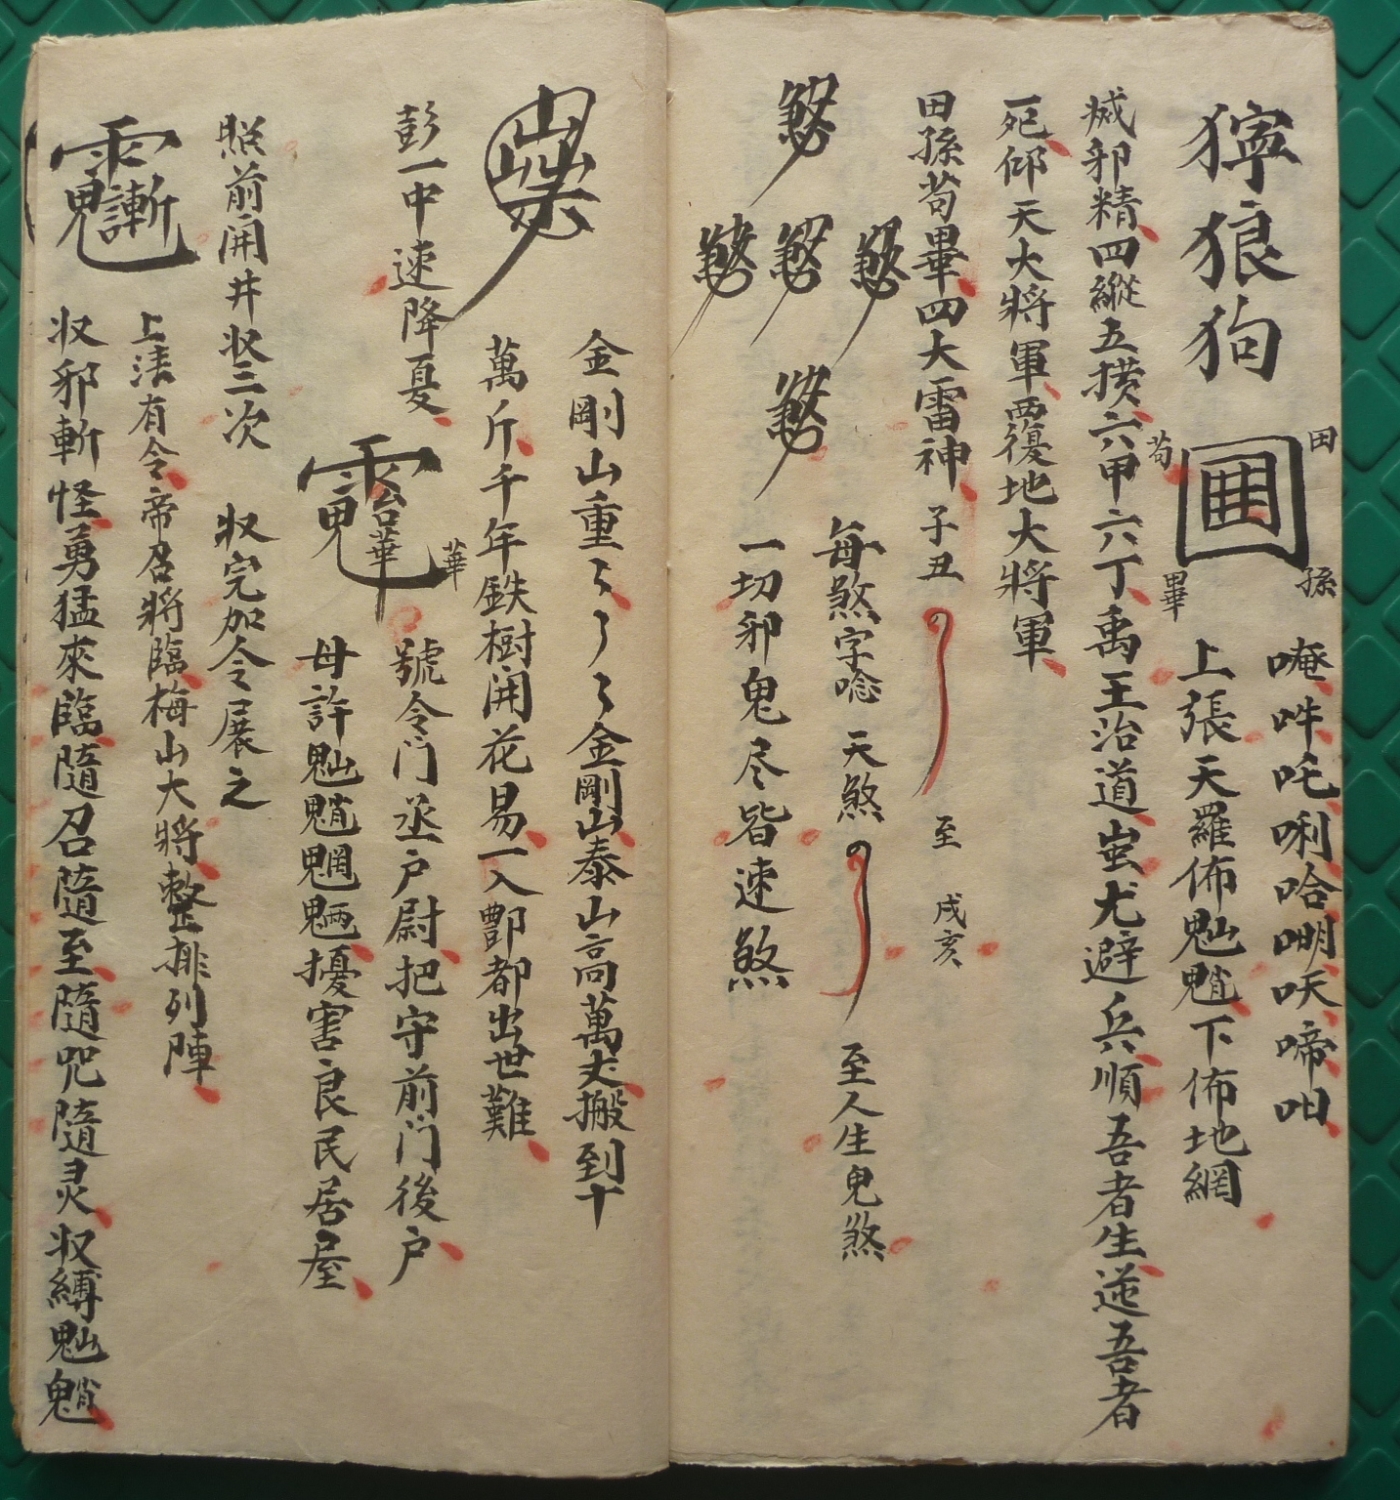 獰狼狗
田
苟
孫
畢
唵吽吒唎哈𠵇吞啼呾
上張天羅佈魈下佈地網
滅邪精四縱五横六甲六丁禹王治道蚩尤避兵順吾者生逆吾者
死仰天大將軍覆地大將軍
田孫苟畢四大雷神子丑
至
戌亥
每煞字唸天煞
至人生鬼煞
一切邪鬼尽皆速煞
金剛山重〻〻〻金剛山泰山高萬丈搬到十
萬斤千年鉄樹開花易一入酆都出世難
彭一中速降戛
華
號令门丞户尉把守前门後户
毋許魈魍魎擾害良民居屋
照前開井収三次
収完加令展之
上清有令帝召將臨梅山大將整排列陣
収邪斬怪勇猛來臨隨召隨至隨咒隨灵収縛魈